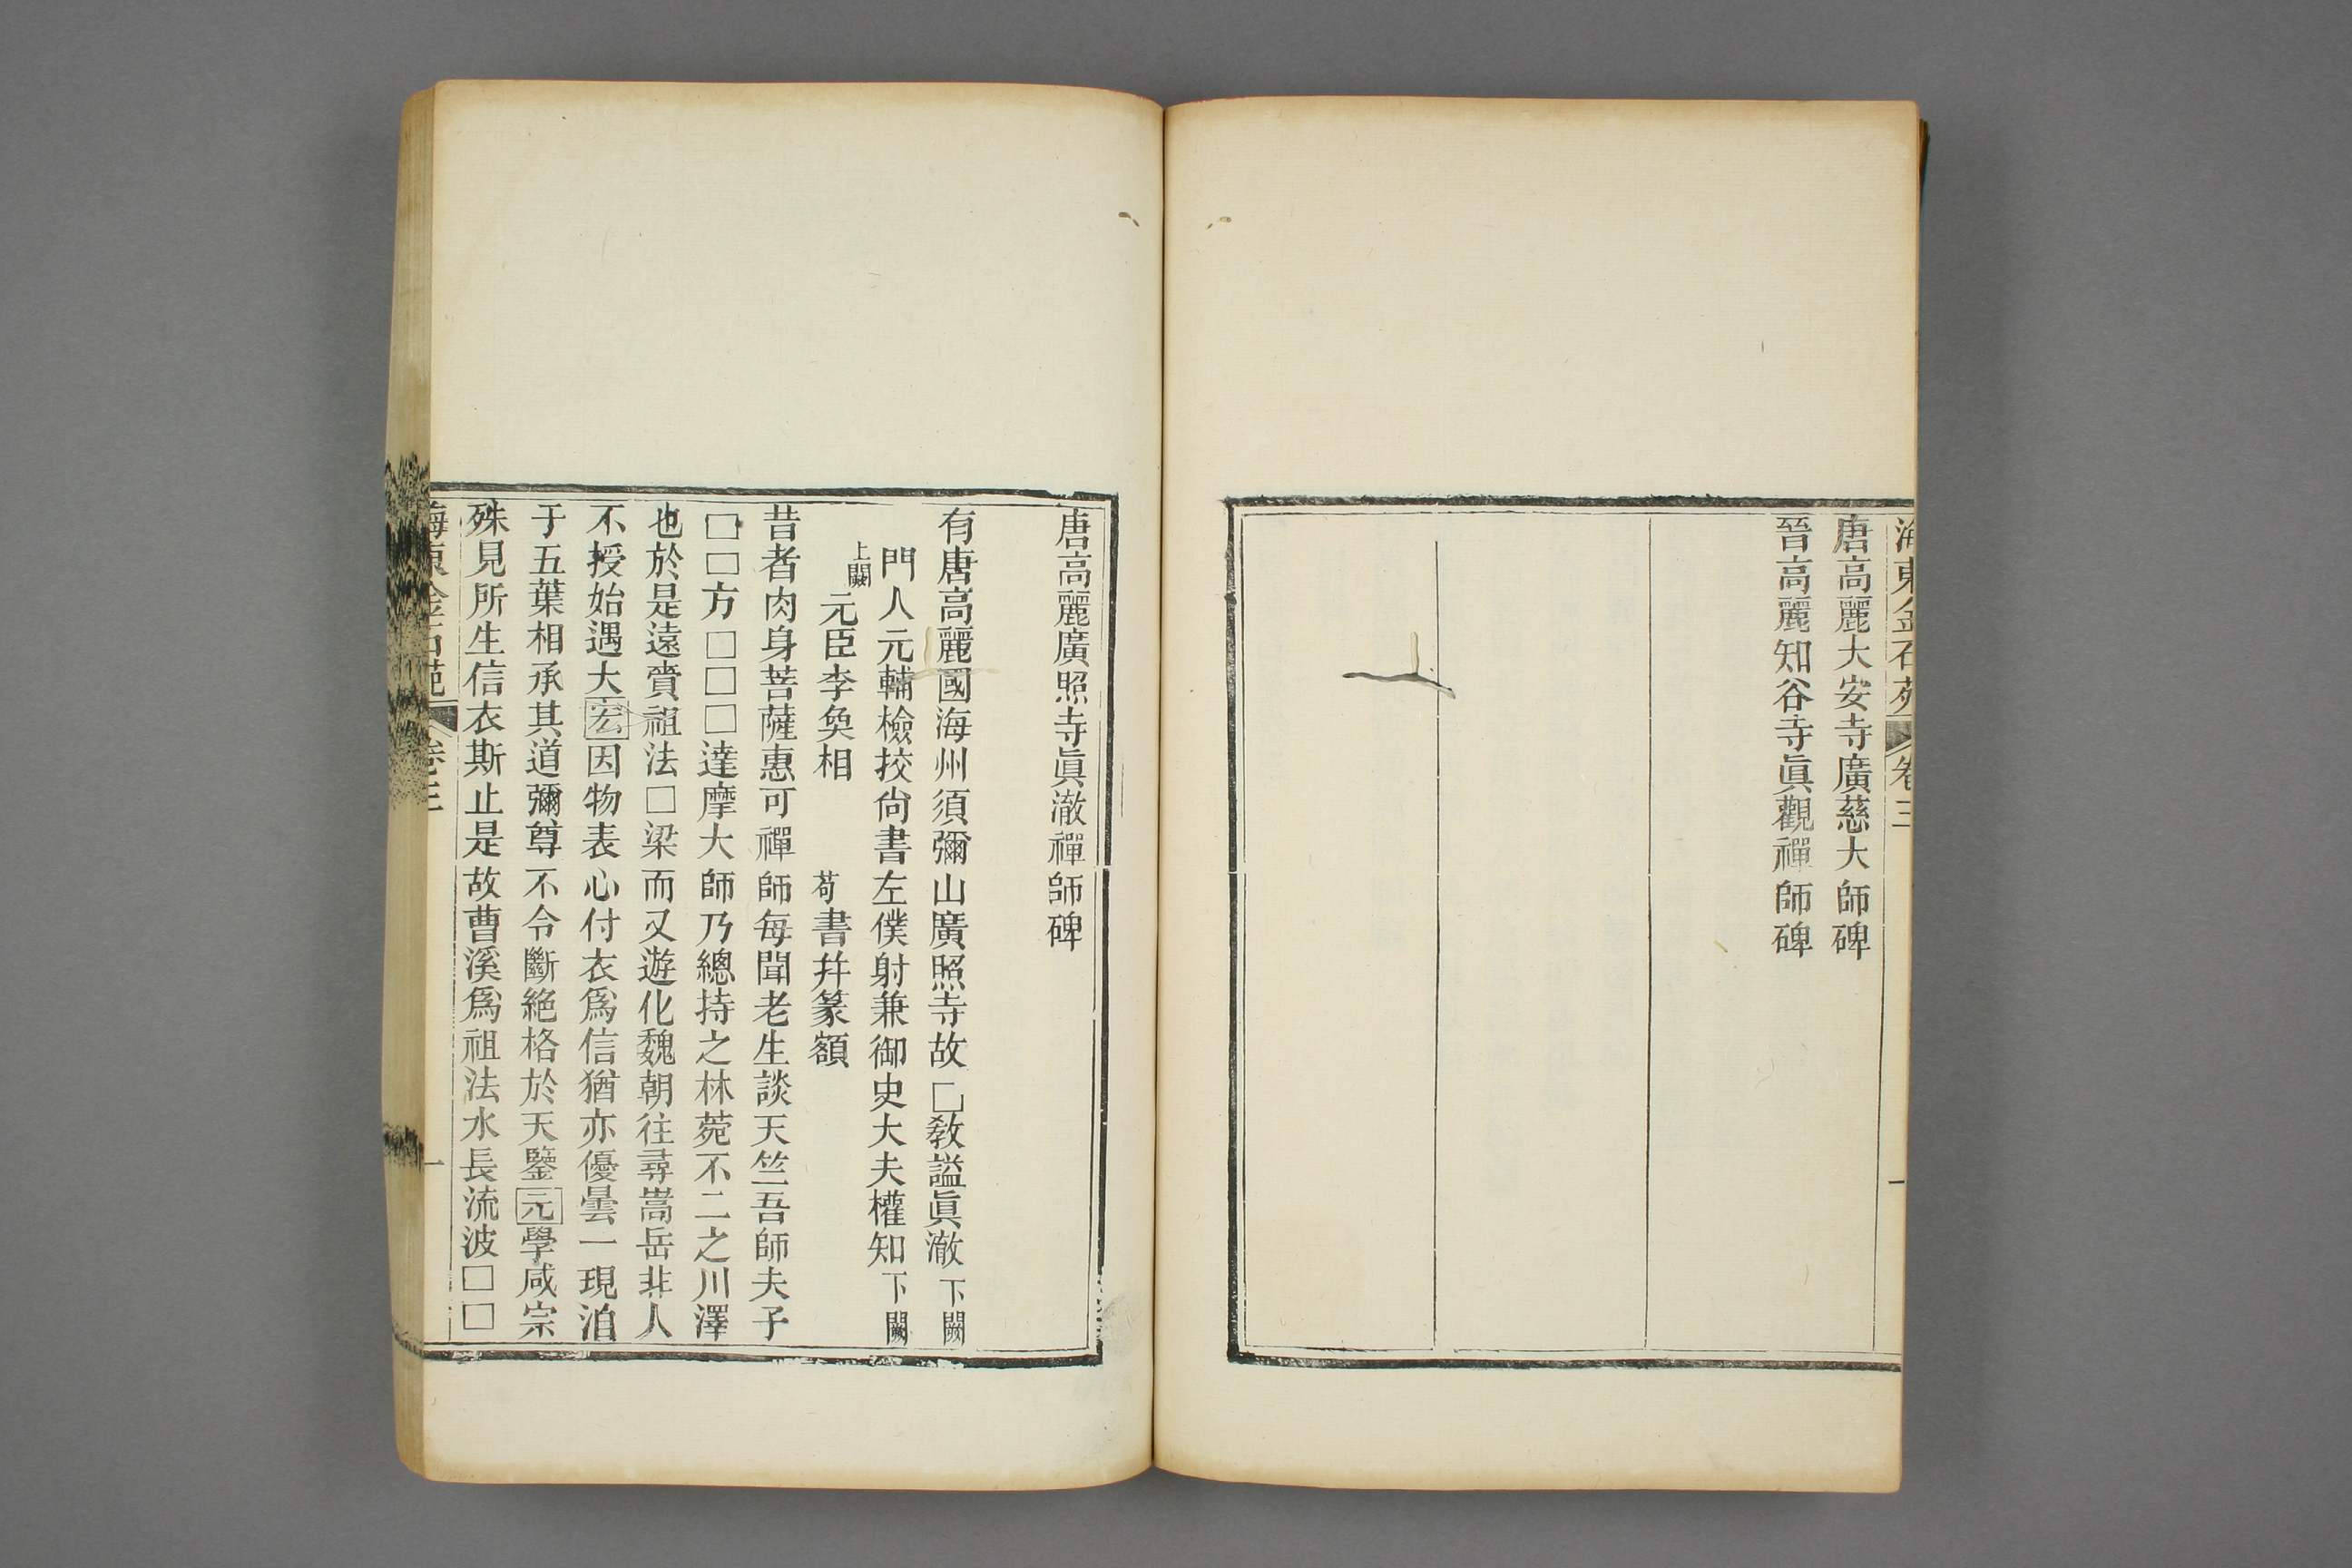 海東金石苑 卷三 一
唐高麗大安寺廣慈大師碑
晉高麗知谷寺眞觀禪師碑
唐高麗廣照寺眞澈禪師碑
有唐高麗國海州須彌山廣照寺故□敎謚眞澈下闕
門人元輔檢挍尙書左僕射兼御史大夫權知下闕
上闕元臣李奐相 苟書幷篆額
昔者肉身菩薩惠可禪師每聞老生談天竺吾師夫子
□□方□□□達摩大師乃總持之林菀不二之川澤
也於是遠賷祖法□梁而又遊化魏朝往尋嵩岳非人
不授始遇大宏因物表心付衣爲信猶亦優曇一現洎
于五葉相承其道彌尊不令斷絶格於天鑒元學咸宗
殊見所生信衣斯止是故曹溪爲祖法水長流波□□
海東金石苑 卷三 一